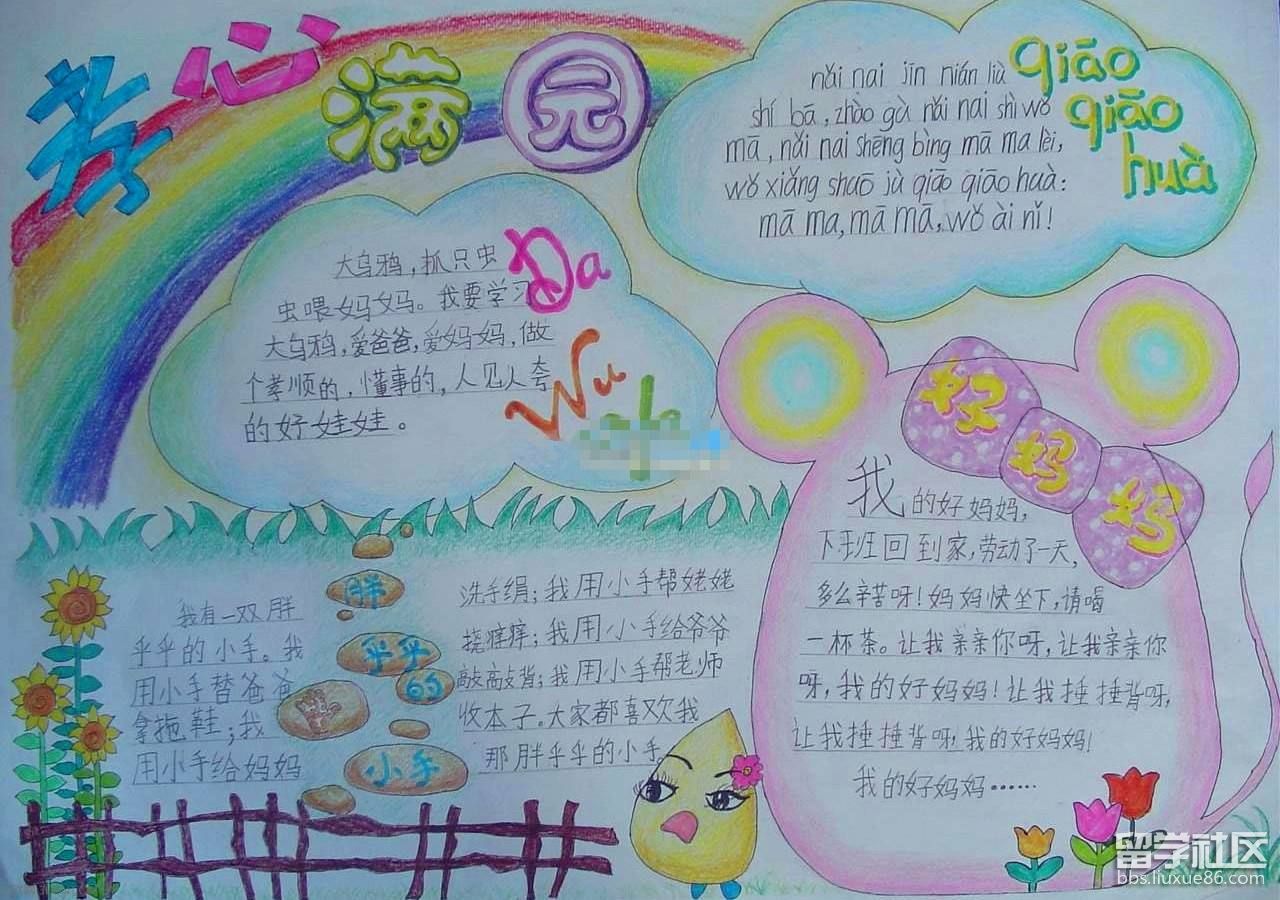 孝心满园
nǎi nai jīn nián liù
shí bā, zhào gù nǎi nai shì wǒ
mā, nǎi nai shēng bìng mā ma lèi,
wǒ xiǎng shuō jù qiāo qiāo huà:
mā ma, mā mā, wǒ ài nǐ!
qiāo
qiāo
huà
大乌鸦,抓只虫
虫喂妈妈。我要学习
大乌鸦,爱爸爸,爱妈妈,做
个孝顺的,懂事的,人见人夸
的好娃娃。
Da
Wu
好妈妈
我的好妈妈,
下班回到家,劳动了一天,
多么辛苦呀!妈妈快坐下,请喝
一杯茶。让我亲亲你呀,让我亲亲你
呀,我的好妈妈!让我捶捶背呀,
让我捶捶背呀!我的好妈妈!
我的好妈妈……
胖
乎乎
的
小手
我有一双胖
乎乎的小手。我
用小手替爸爸
拿拖鞋;我
用小手给妈妈
洗手绢;我用小手帮姥姥
挠痒痒;我用小手给爷爷
敲敲背;我用小手帮老师
收本子。大家都喜欢我
那胖乎乎的小手
留学社区
bbs.liuxue86.com